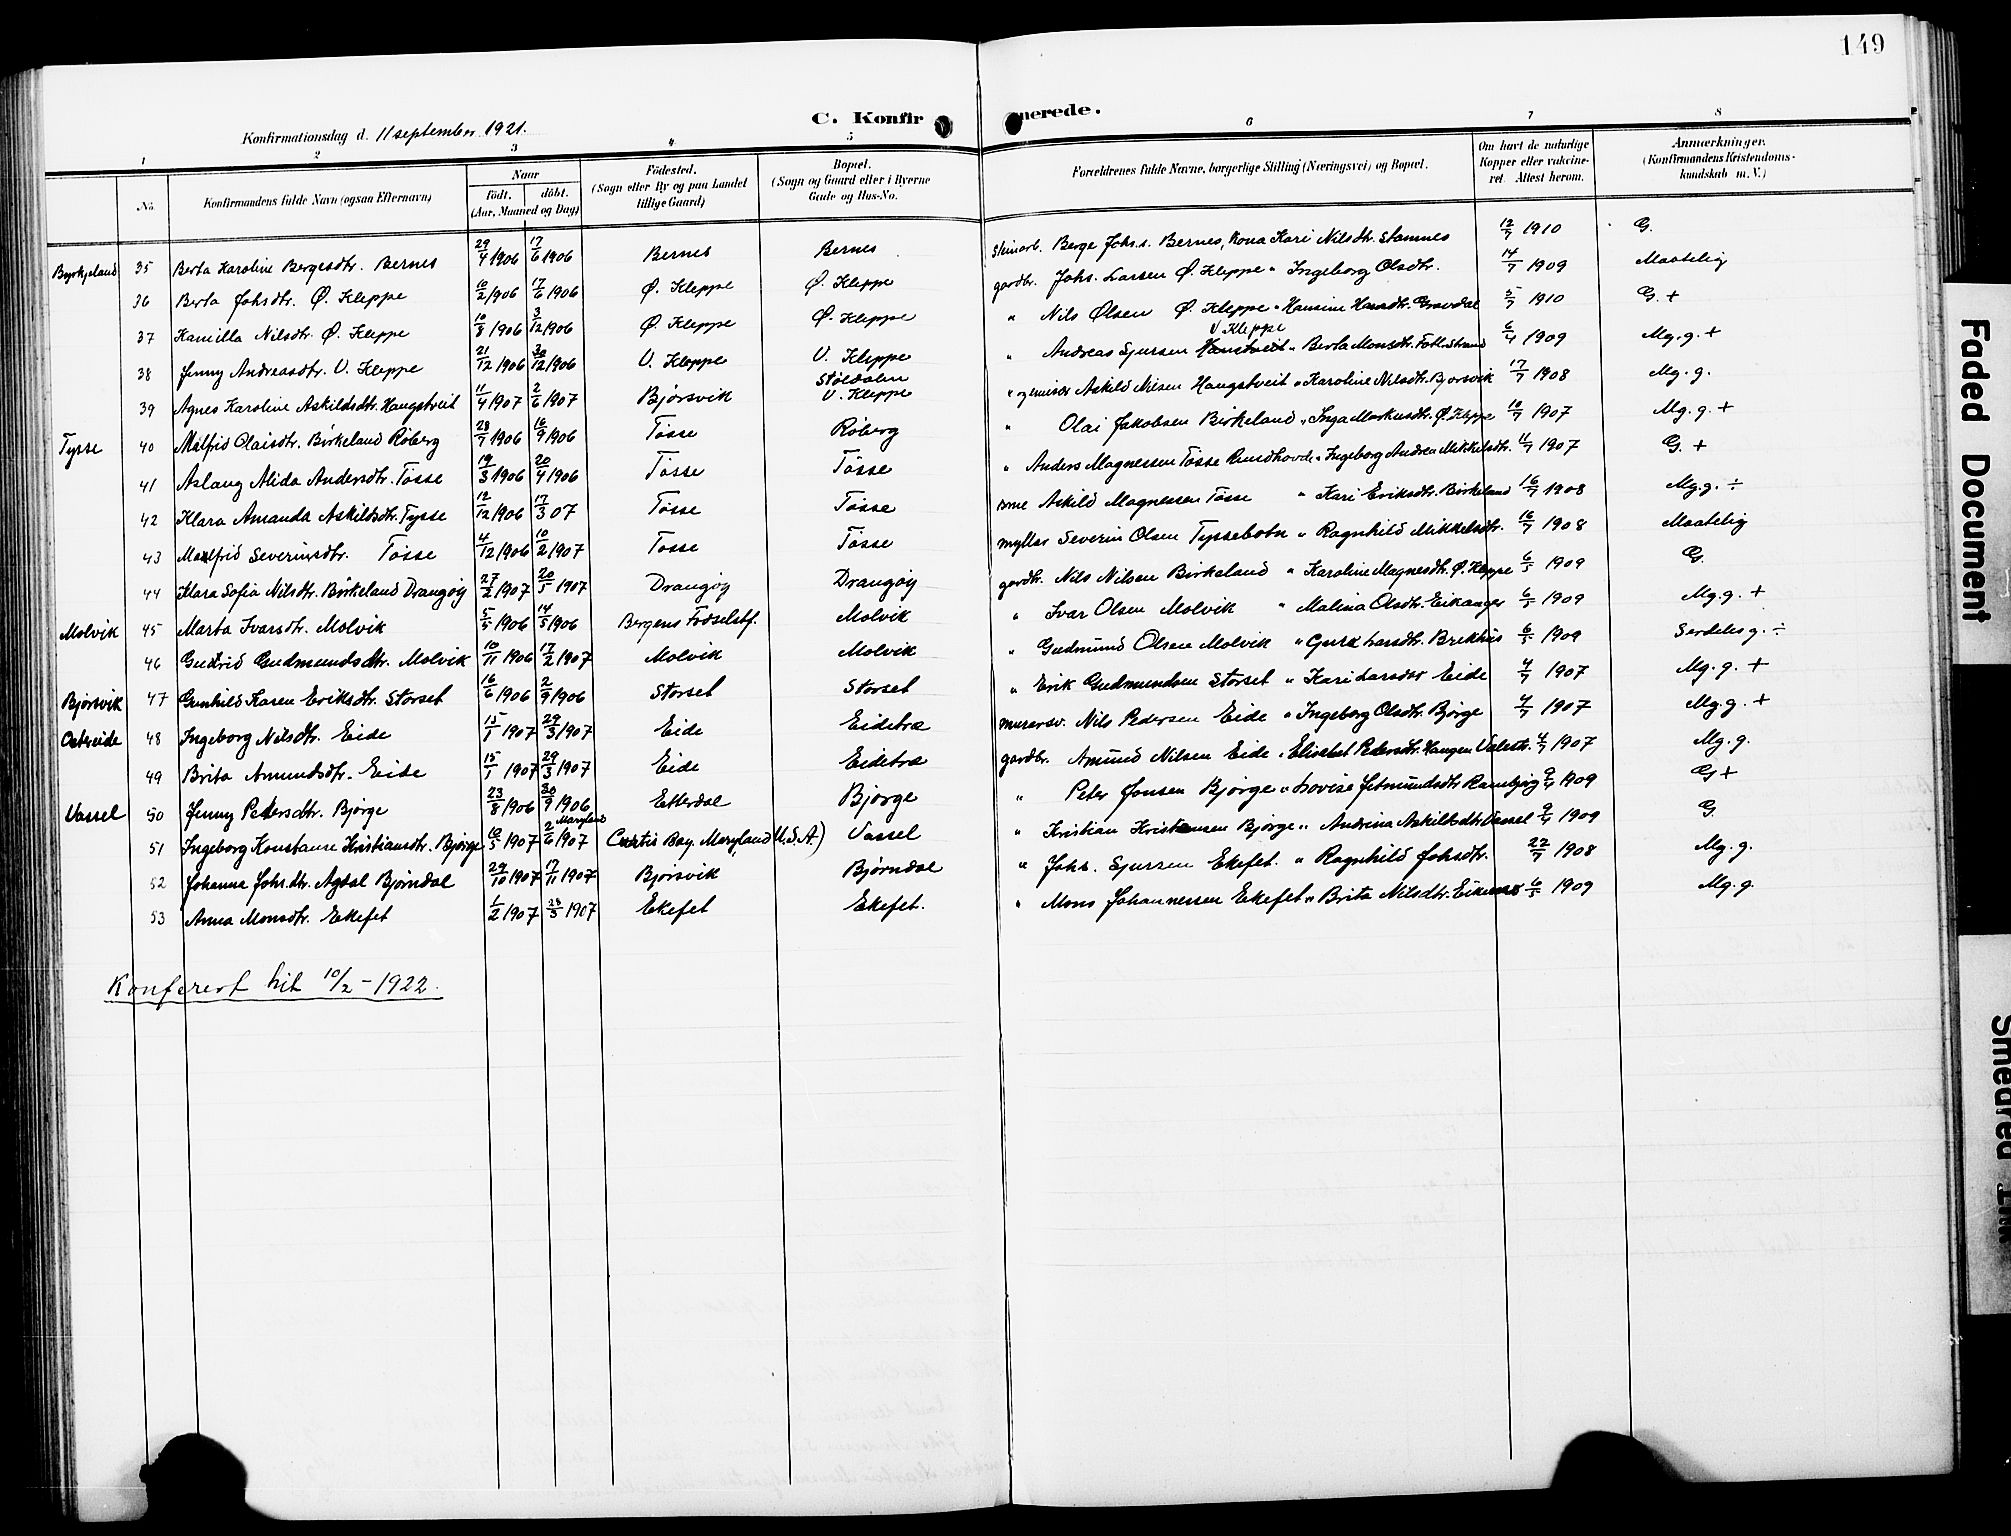 149
C. Konfirmerede.
Konfirmationsdag d. 11 september 1921.
1 2 3 4 5 6 7 8
No. Konfirmandens fulde Navn (ogsaa Efternavn) Naar født. døbt. (Aar, Maaned og Dag) Fødested. (Sogn eller By og paa Landet tillige Gaard) Bopæl. (Sogn og Gaard eller i Byerne Gade og Hus-No. Forældrenes fulde Navne, borgerlige Stilling (Næringsvei) og Bopæl. Om havt de naturlige Kopper eller vakcineret. Attest herom. Anmærkninger. (Konfirmandens Kristendomskundskab m. V.)
Byrkjeland 35 Berta Karoline Bergesdtr. Bernes 29/4 1906 17/6 1906 Bernes Bernes Steinarb. Berge Johs.s. Bernes, Kona Kari Nilsdtr. Stamnes 12/7 1910 G.
36 Berta Johsdtr. Ø. Kleppe 10/2 1906 17/6 1906 Ø. Kleppe Ø. Kleppe gardbr. Johs. Larsen Ø. Kleppe " Ingeborg Olsdtr. 14/7 1909 Maatelig
37 Kamilla Nilsdtr. Ø. Kleppe 10/8 1906 3/12 1906 Ø. Kleppe Ø. Kleppe " Nils Olsen Ø. Kleppe " Hansine Hansdtr. Gravdal 5/7 1910 G. +
38 Jenny Andreasdtr. V. Kleppe 21/12 1906 30/12 1906 V. Kleppe V. Kleppe " Andreas Sjursen V. Kleppe " Berta Monsdtr. Fotl. Strand 6/4 1909 Mg. g. +
39 Agnes Karoline Askildsdtr. Haugstveit 11/4 1907 2/6 1907 Bjørsvik Støldalen V. Kleppe " Askild Nilsen Haugstveit " Karoline Nilsdtr. Bjørsvik 17/7 1908 Mg. g.
Tysse 40 Malfrid Olaisdtr. Birkeland Røberg 28/7 1906 16/9 1906 Tøsse Røberg " Olai Jakobsen Birkeland " Inga Markusdtr. Ø. Kleppe 10/7 1907 Mg. g. +
41 Aslaug Alida Andersdtr. Tøsse 19/3 1906 20/4 1906 Tøsse Tøsse " Anders Magnessen Tøsse Rundhovde " Ingeborg Andrea Mikkelsdtr. 11/7 1907 G. +
42 Klara Amanda Askildsdtr. Tysse 12/12 1906 17/3 07 Tøsse Tøsse Askild Magnessen Tøsse " Kari Eriksdtr. Birkeland 16/7 1908 Mg. g. ÷
43 Malfrid Severinsdtr. Tøsse 4/12 1906 10/2 1907 Tøsse Tøsse myllar Severin Olsen Tyssebotn " Ragnhild Mikkelsdtr. 16/7 1908 Maatelig
44 Klara Sofia Nilsdtr. Birkeland Drangøy 27/2 1907 20/5 1907 Drangøy Drangøy gardbr. Nils Nilsen Birkeland " Karoline Magnesdtr. Ø. Kleppe 6/5 1909 G.
Molvik 45 Marta Ivarsdtr. Molvik 5/5 1906 14/5 1906 Bergens Fødselstf. Molvik " Ivar Olsen Molvik " Malina Olsdtr. Eikanger 6/5 1909 Mg. g. +
46 Gudrid Gudmundsdtr. Molvik 10/11 1906 17/2 1907 Molvik Molvik " Gudmund Olsen Molvik " Larsdtr. Brekhus 6/5 1909 Serdeles g. ÷
Bjørsvik 47 Gunhild Karen Eriksdtr. Storset 16/6 1906 2/9 1906 Storset Storset " Erik Gudmundsen Storset " Kari Larsdtr Eide 4/7 1907 Mg. g. +
Ostreide 48 Ingeborg Nilsdtr. Eide 15/1 1907 29/3 1907 Eide Eidetræ murarsv. Nils Pedersen Eide " Ingeborg Olsdtr. Bjørge 4/7 1907 Mg. g. +
49 Brita Amundsdtr. Eide 15/1 1907 29/3 1907 Eide Eidetræ gardbr. Amund Nilsen Eide " Elisabet Pedersdtr. Haugen 4/7 1907 Mg. g.
Vassel 50 Jenny Petersdtr. Bjørge 23/8 1906 30/9 1906 Etterdal Bjørge " Peter Jonsen Bjørge " Lovise Jetmundsdtr Rambjørg 9/4 1909 G +
51 Ingeborg Konstanse Kristiansdtr. Bjørge 10/5 1907 2/6 1907 Maryland Curtis Bay. Maryland U.S.A.) Vassel " Kristian Kristensen Bjørge " Andrina Askildsdtr Vassel 9/4 1909 G.
52 Johanna Johs.dtr. Agdal Bjørndal 29/10 1907 17/11 1907 Bjørsvik Bjørndal " Johs. Sjursen Ekefet. " Ragnhild Johsdtr. 22/7 1908 Mg. g.
53 Anna Monsdtr. Ekefet 1/2 1907 28/3 1907 Ekefet Ekefet. " Mons Johannessen Ekefet " Brita Nilsdtr. Eikemo 6/5 1909 Mg. g.
Konferert hit 10/2 – 1922.
Faded Document
Smeared Ink